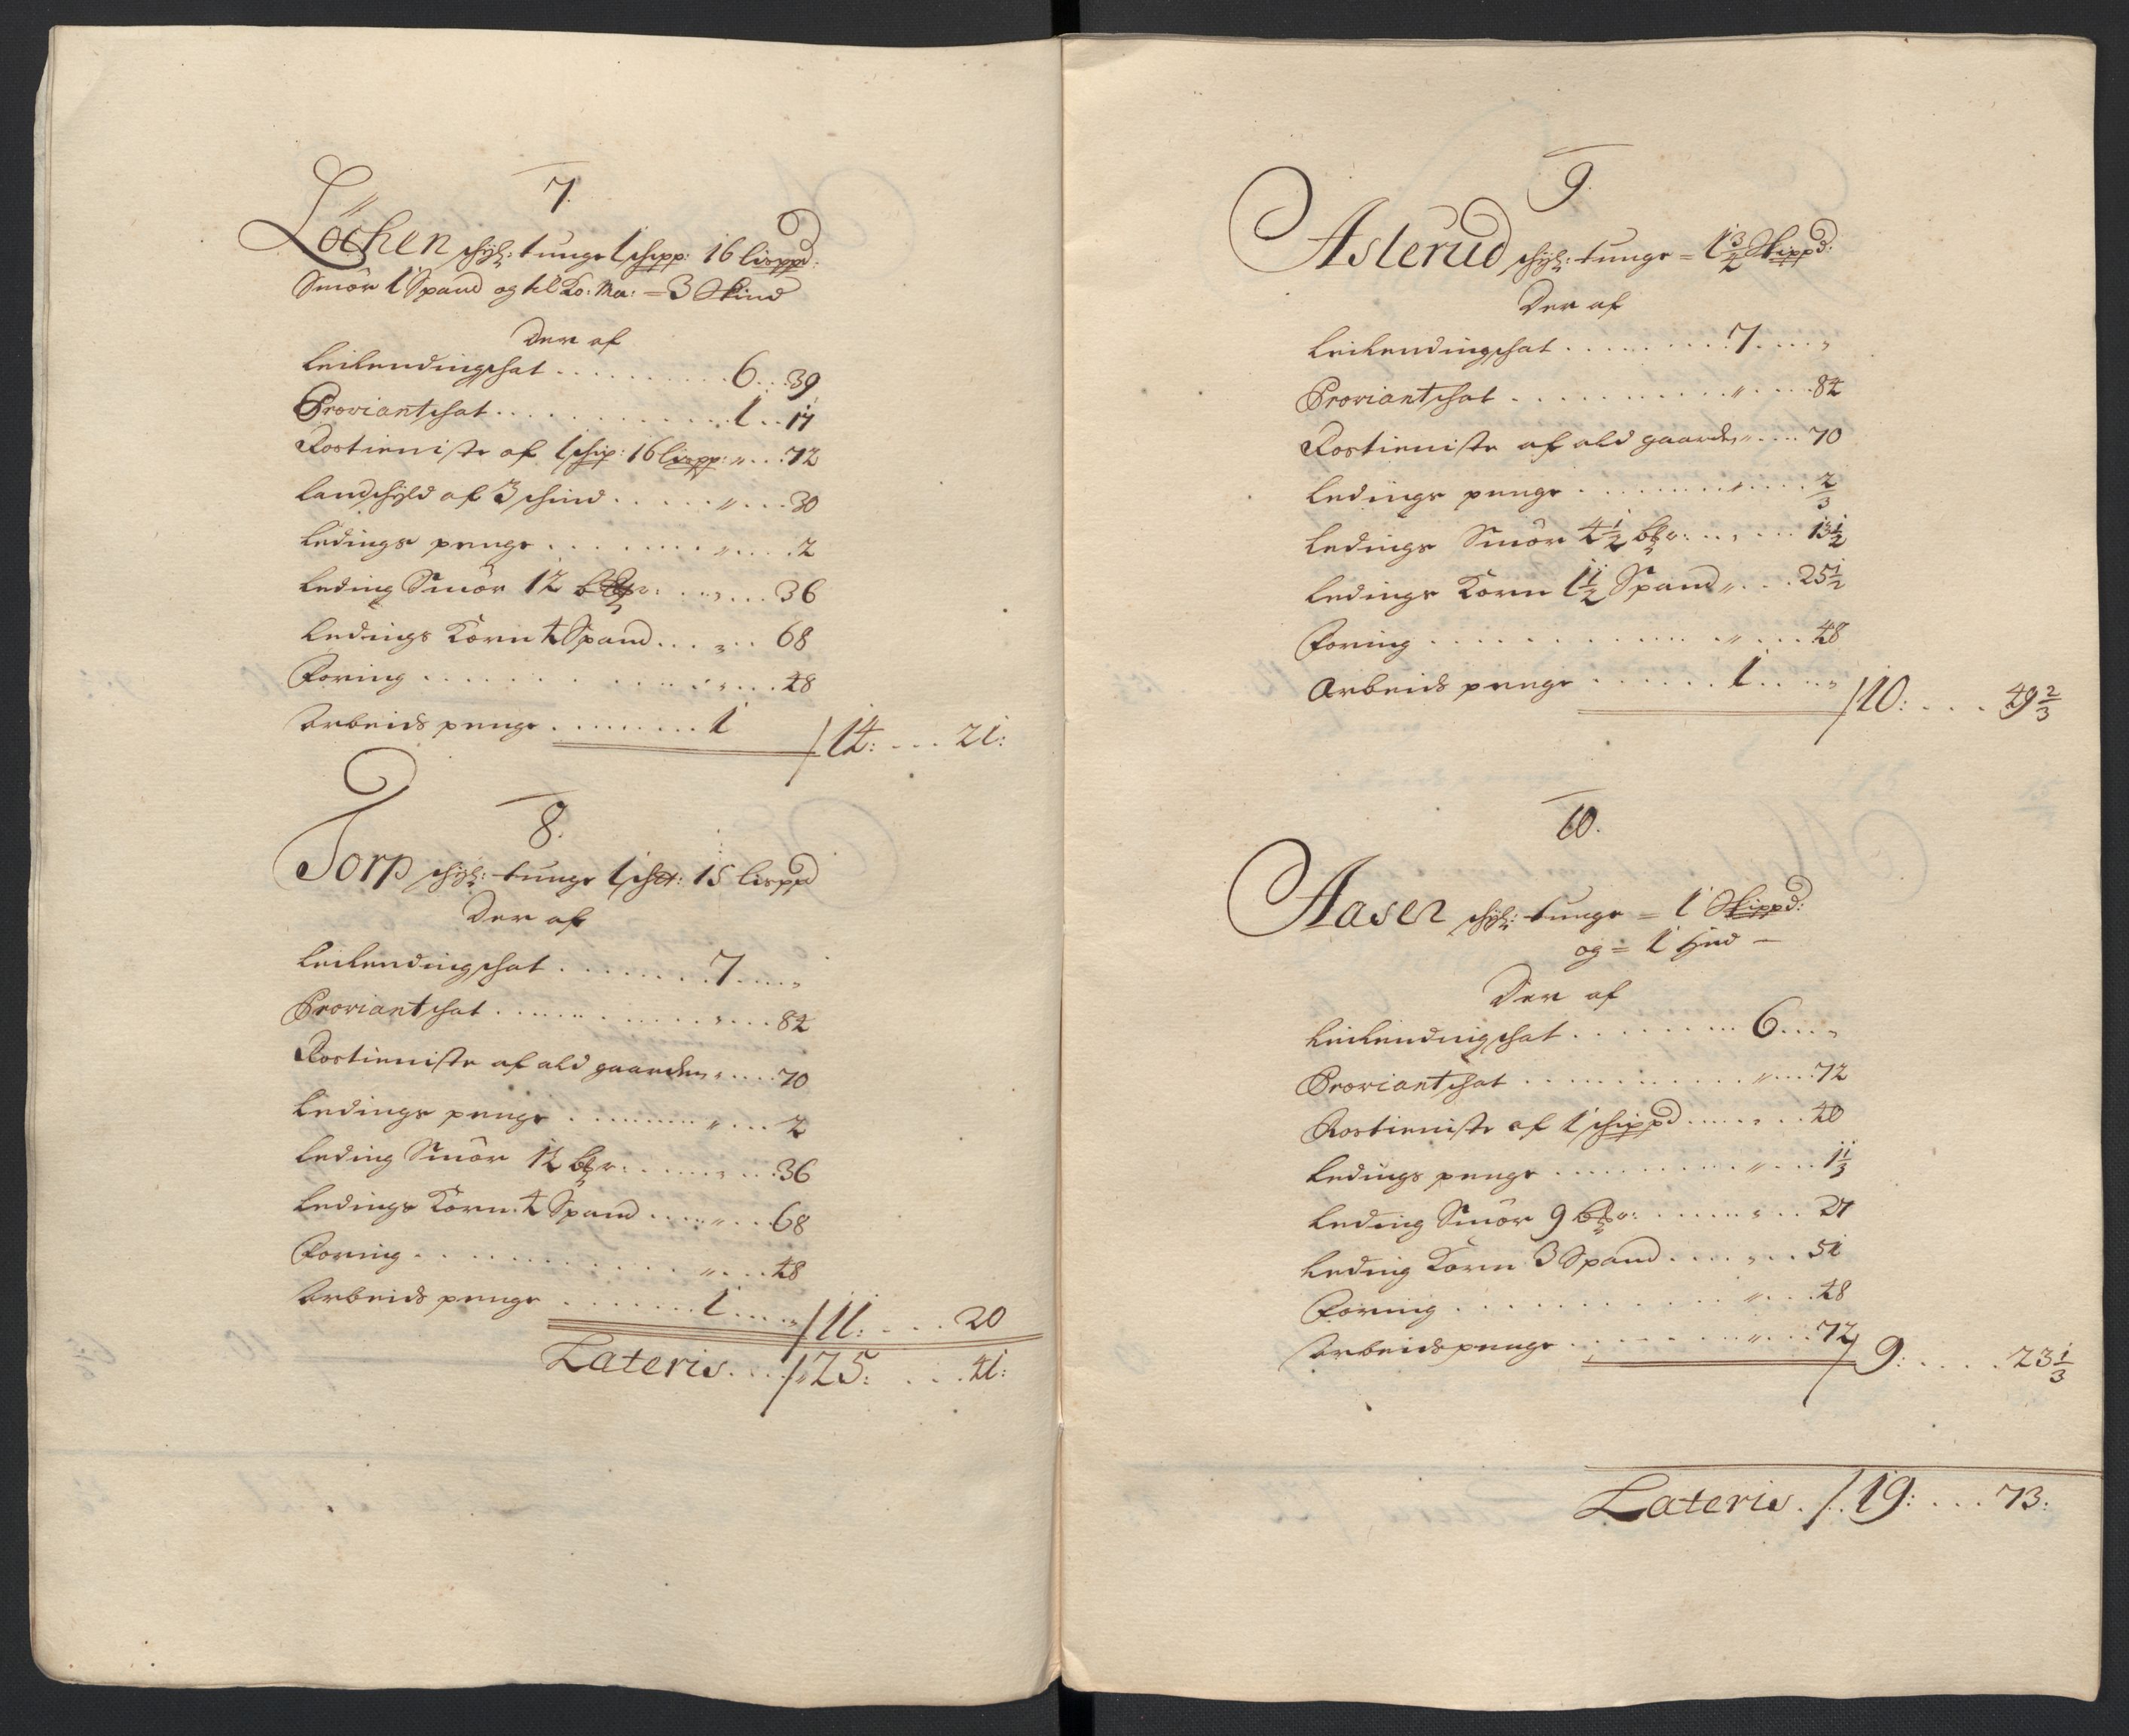 7.
Löchen schÿl: tunge 1 schpp: 16 lispd:
Smör 1 Spand og til Ko: Ma: = 3 Skind
Der af
Leilendingschat . . . 6 . . 39
Proviantschat . . . 1 . . 17
Rostieniste af 1 schip: 16 lispp: „ . . 72
Landschÿld af 3 schind . . . „ . . 30
Ledings penge . . . „ . . 2
Leding Smör 12 . . . „ . . 36
Ledings Korn 4 Spand . . „ . . 68
Foring . . . „ . . 48
Arbeids penge . . . 1
/ 14: . . . 21:
8.
Torp schÿl: tunge 1 sch: 15 lispd
Der af
Leilendingschat . . . 7 . . „
Proviantschat . . . „ . . 84
Rostieniste af ald gaarden „ . . 70
Ledings penge . . . „ . . 2
Leding Smör 12 bpr: . . . „ . . 36
Ledings Korn 4 Spand . . . „ . . 68
Foring . . . „ . . 48
Arbeids penge . . . 1 . . „ / 11: . . . 20
Lateris . . / 25: . . . 41:
9.
Aslerud schÿl: tunge = 1 3/4 Skippd:
Der af
Leilendingschat . . . 7 . . „
Proviantschat . . . „ . . 84
Rostieniste af ald gaarden „ . . 70
Ledings penge . . . „ . . 2/3
Ledings Smör 4 1/2 bpr: . . „ . . 13 1/2
Ledings Korn 1 1/2 Spand „ . . 25 1/2
Foring . . . „ . . 48
Arbeids penge . . . 1 . . „ / 10: . . . 49 2/3
10.
Aasen schÿl: tunge = 1 Skippd:
og = 1 Hud —
Der af
Leilendingschat . . . 6 . . „
Proviantschat . . . „ . . 72
Rostieniste af 1 schippd . . . „ . . 40
Ledings penge . . . „ . . 1 1/3
Leding Smör 9 bpr: . . . „ . . 27
Leding Korn 3 Spand . . . „ . . 51
Foring . . . „ . . 48
Arbeidspenge . . . „ . . 72 / 9: . . . 23 1/3
Lateris . / 19: . . . 73: